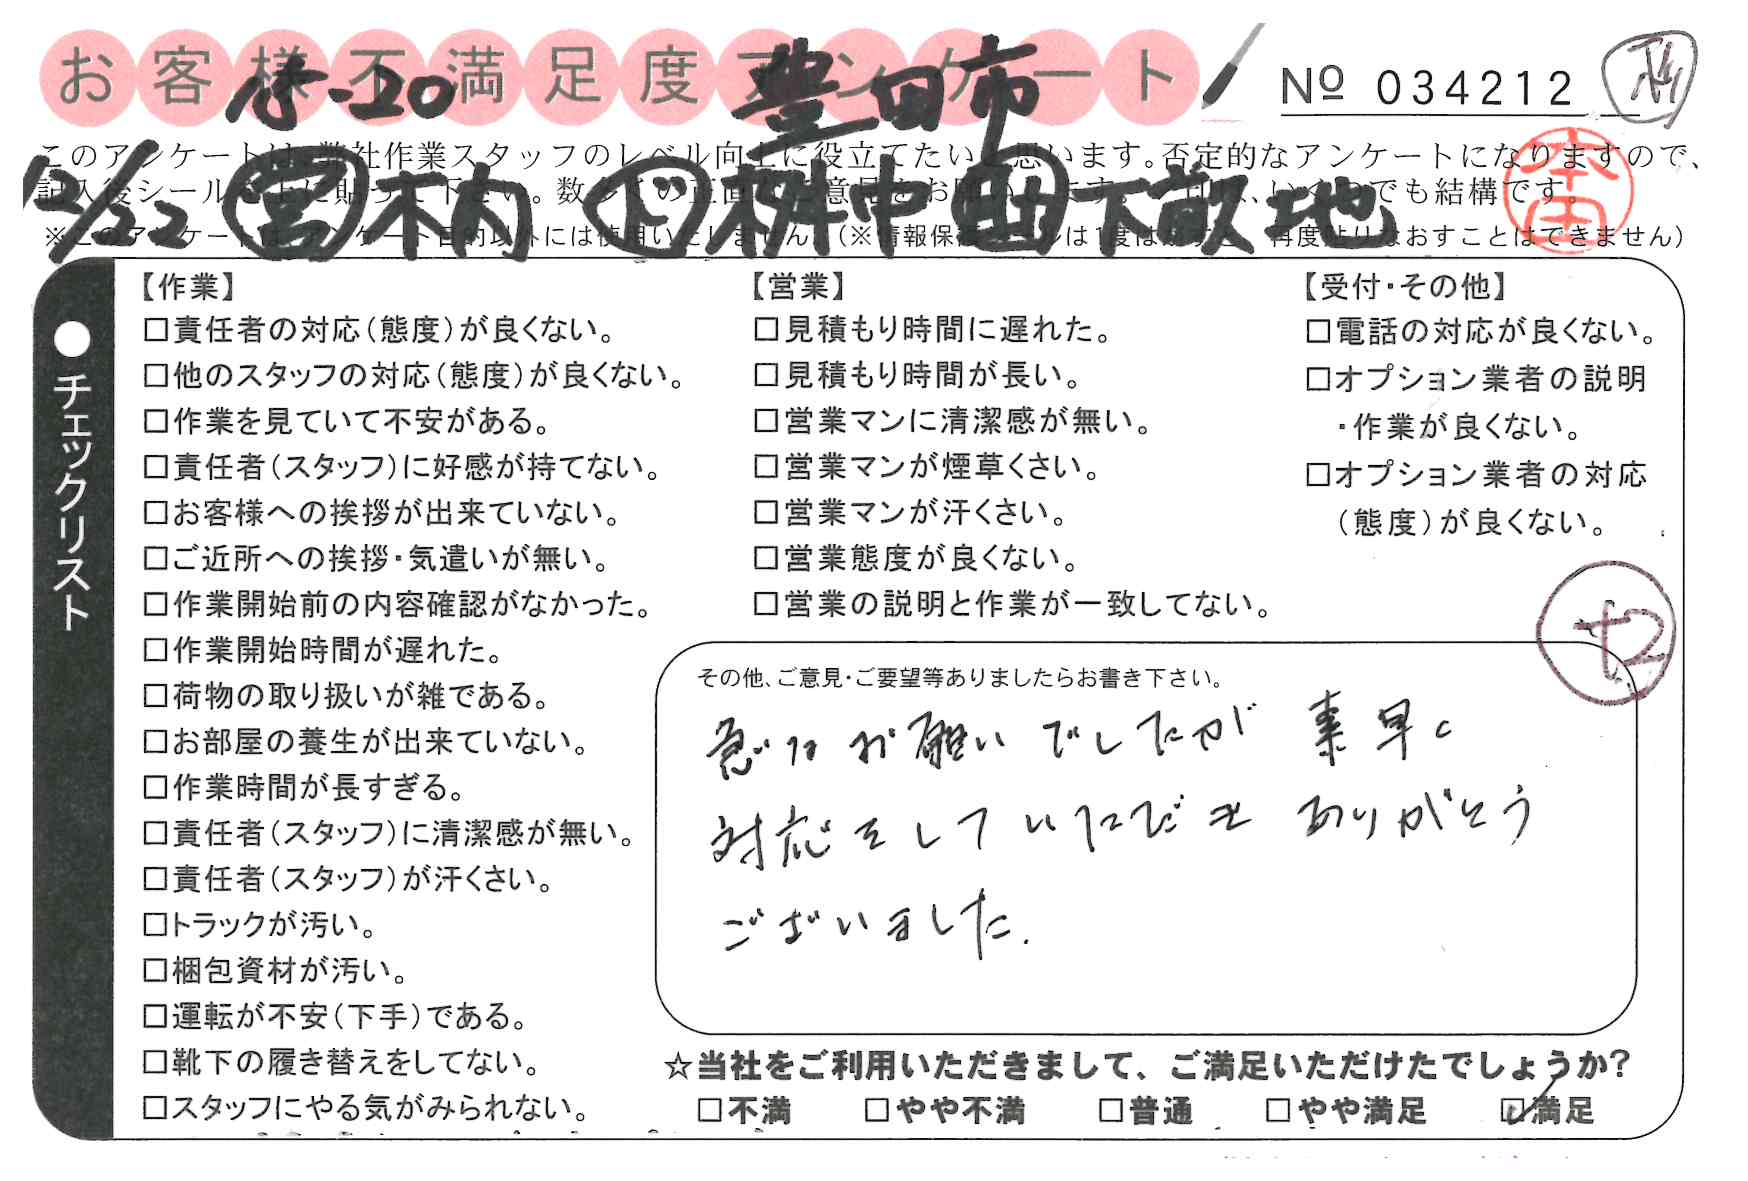 お客様不満足度アンケート
No 034212
春-20 豊田市
このアンケートは、弊社作業スタッフのレベル向上に役立てたいと思います。否定的なアンケートになりますので、
記入後シールを上に貼って下さい。数多くの正直なご意見をお願いします。
でも結構です。
12/22 営 木内 ド 桝中 田 下敷地
※このアンケートは、アンケート目的以外には使用いたしません。(※情報保護シールは1度はがすと、再度貼りなおすことはできません)
本田
●チェックリスト
【作業】
□責任者の対応(態度)が良くない。
□他のスタッフの対応(態度)が良くない。
□作業を見ていて不安がある。
□責任者(スタッフ)に好感が持てない。
□お客様への挨拶が出来ていない。
□ご近所への挨拶・気遣いが無い。
□作業開始前の内容確認がなかった。
□作業開始時間が遅れた。
□荷物の取り扱いが雑である。
□お部屋の養生が出来ていない。
□作業時間が長すぎる。
□責任者(スタッフ)に清潔感が無い。
□責任者(スタッフ)が汗くさい。
□トラックが汚い。
□梱包資材が汚い。
□運転が不安(下手)である。
□靴下の履き替えをしてない。
□スタッフにやる気がみられない。
【営業】
□見積もり時間に遅れた。
□見積もり時間が長い。
□営業マンに清潔感が無い。
□営業マンが煙草くさい。
□営業マンが汗くさい。
□営業態度が良くない。
□営業の説明と作業が一致してない。
【受付・その他】
□電話の対応が良くない。
□オプション業者の説明
・作業が良くない。
□オプション業者の対応
(態度)が良くない。
その他、ご意見・ご要望等ありましたらお書き下さい。
急なお願いでしたが 素早く
対応をしていただき ありがとう
ございました.
☆当社をご利用いただきまして、ご満足いただけたでしょうか?
□不満 □やや不満 □普通 □やや満足 ☑満足